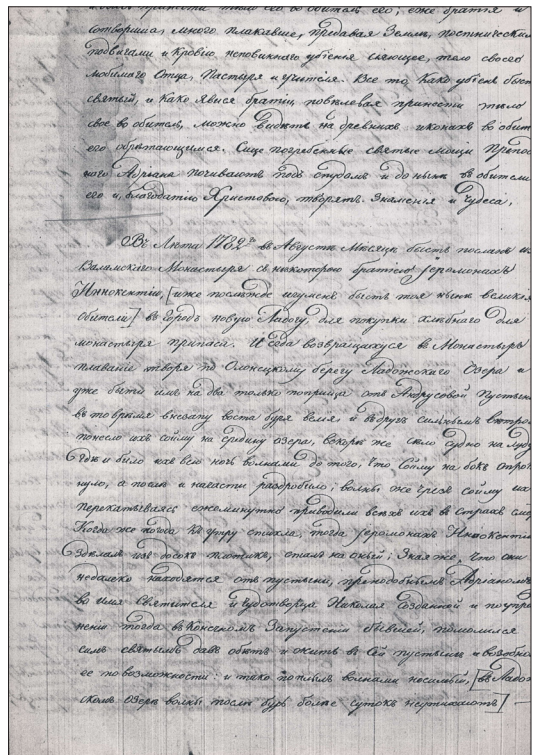 сотвориша, много плакавше, предавая Земли, постническими
подвигами и кровію неповиннаго убіенія сіяющее, тело своего
любимаго Отца, Пастыря и учителя. Все то, како убіенъ бысть
святый, и како явися братіи, повелевая принести тело
свое во обитель, можно видѣть на древнихъ иконахъ во обит
его обрѣтающимся. Сице погребенныя святые мощи Препос
наго Адріана почиваютъ подъ спудомъ и до нынѣ въ обители
его и, благодатію Христовою, творятъ Знаменія и Чудеса,
Въ Лѣто 1782 въ Августѣ Мѣсяцѣ бысть посланъ из
Валамскаго Монастыря съ нѣкоторою братіею Іеромонахъ
Иннокентій, [иже послѣжде игуменъ бысть тоя нынѣ великія
обители] въ Городъ новую Ладогу, для покупки хлѣбнаго для
монастыря припаса. И егда возвращахуся въ Монастырь
плаваніе творя по Олонецкому берегу Ладожскаго Озера и
уже быти имъ на два только поприща отъ Андрусовой Пустыни
въ то время внезапу воста буря велія, и вдругъ сильнымъ вѣтро
понесло ихъ сойму на средину озера, вскорѣ же стло судно на луду
Гдѣ и било ихъ всю ночь волнами до того, что сойму на бокъ опро
нуло, а послѣ и начасти раздробило; волны же чрезъ сойму их
перекатываясь ежеминутно приводили всѣхъ ихъ въ страхъ сме
Когда же погода къ утру стихла, тогда Іеромонахъ Иннокентій
Здѣлалъ изъ досокъ плотикъ, сталъ на оный; Зная же, что они
недалеко находятся отъ пустыни, преподобнымъ Адріаномъ
во имя Святителя и Чудотворца Николая Созданной и по упр
неніи тогда въ конечномъ Запустеніи бывшей, помолился
симъ святымъ давъ обѣтъ и жить въ Сей пустынѣ и возобнов
ее по возможности: и тако поплылъ волнами носимый, [въ Ладож
скомъ озерѣ волны послѣ бурь болѣе сутокъ неутихаютъ]